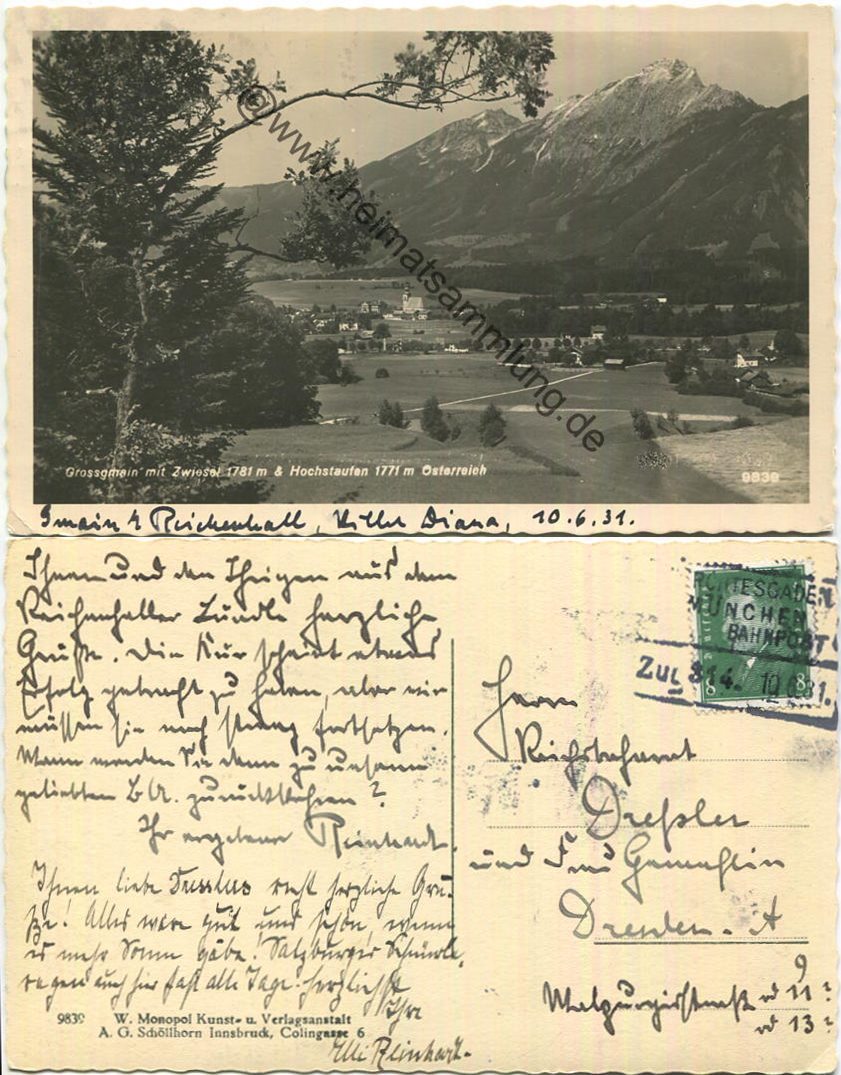 © www.heimatsammlung.de
Grossgmain mit Zwiesel 1781 m & Hochstaufen 1771 m Österreich
9839
Gmain b/ Reichenhall, Villa Diana, 10.6.31.
Ihnen und den Ihrigen aus dem
Reichenhaller Ländle herzliche
Grüße. Die Kur scheint etwas
Erfolg gebracht zu haben, aber wir
müssen sie noch streng fortsetzen.
Wann werden Sie denn zu unserm
geliebten zurückkehren?
Ihr ergebener Reinhardt.
Ihnen liebe Dresslers recht herzliche Grü-
ße! Alles wäre gut und schön, wenn
es mehr Sonne gäbe! Salzburger Schnürl-
regen auch hier fast alle Tage. Herzlichst
Ihre
Elli Reinhart.
9839 W. Monopol Kunst- u. Verlagsanstalt
A. G. Schöllhorn Innsbruck, Colingasse 6
BERCHTESGADEN
MÜNCHEN
BAHNPOST
Zug 314. 10.6.31.
8 8
Herrn
Reichsbahnrat
Dreßler
und Frau Gemahlin
Dresden-A
9
Walpurgisstraße od 11?
od 13?